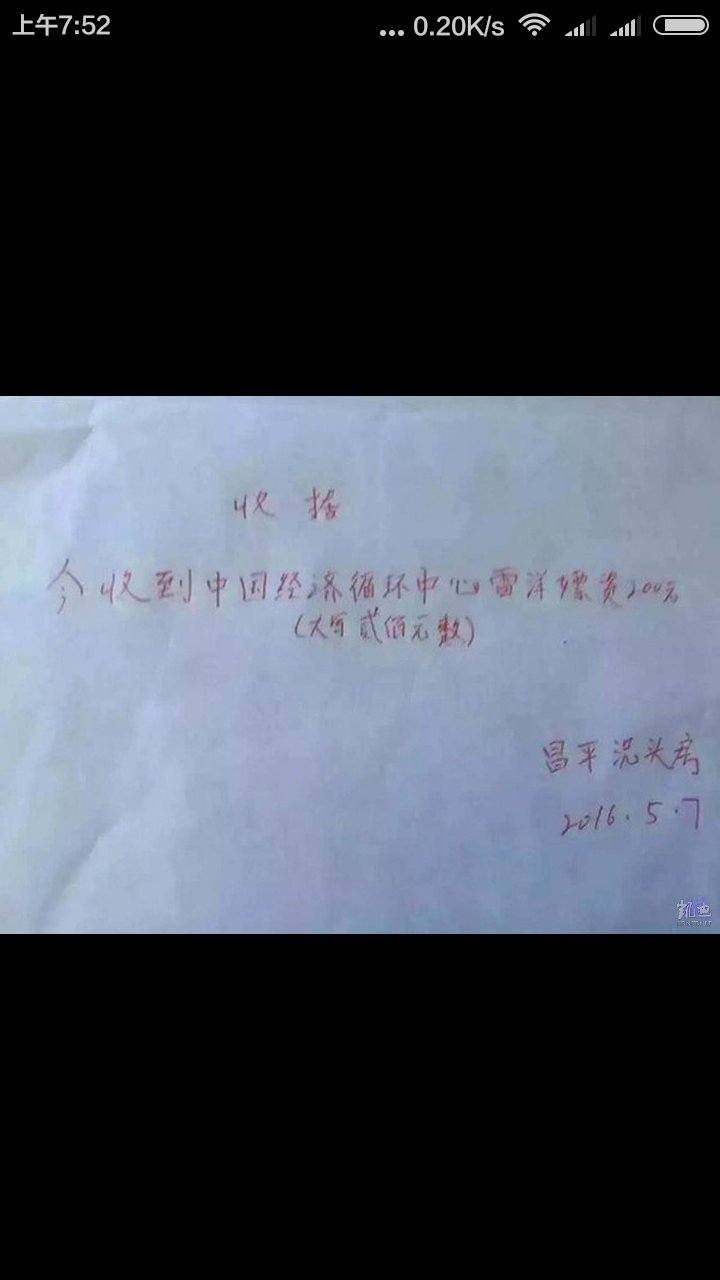 上午7:52
... 0.20K/s
收 据
今收到中国经济循环中心雷洋嫖资200元
(大写贰佰元整)
昌平洗头房
2016.5.7
凯迪